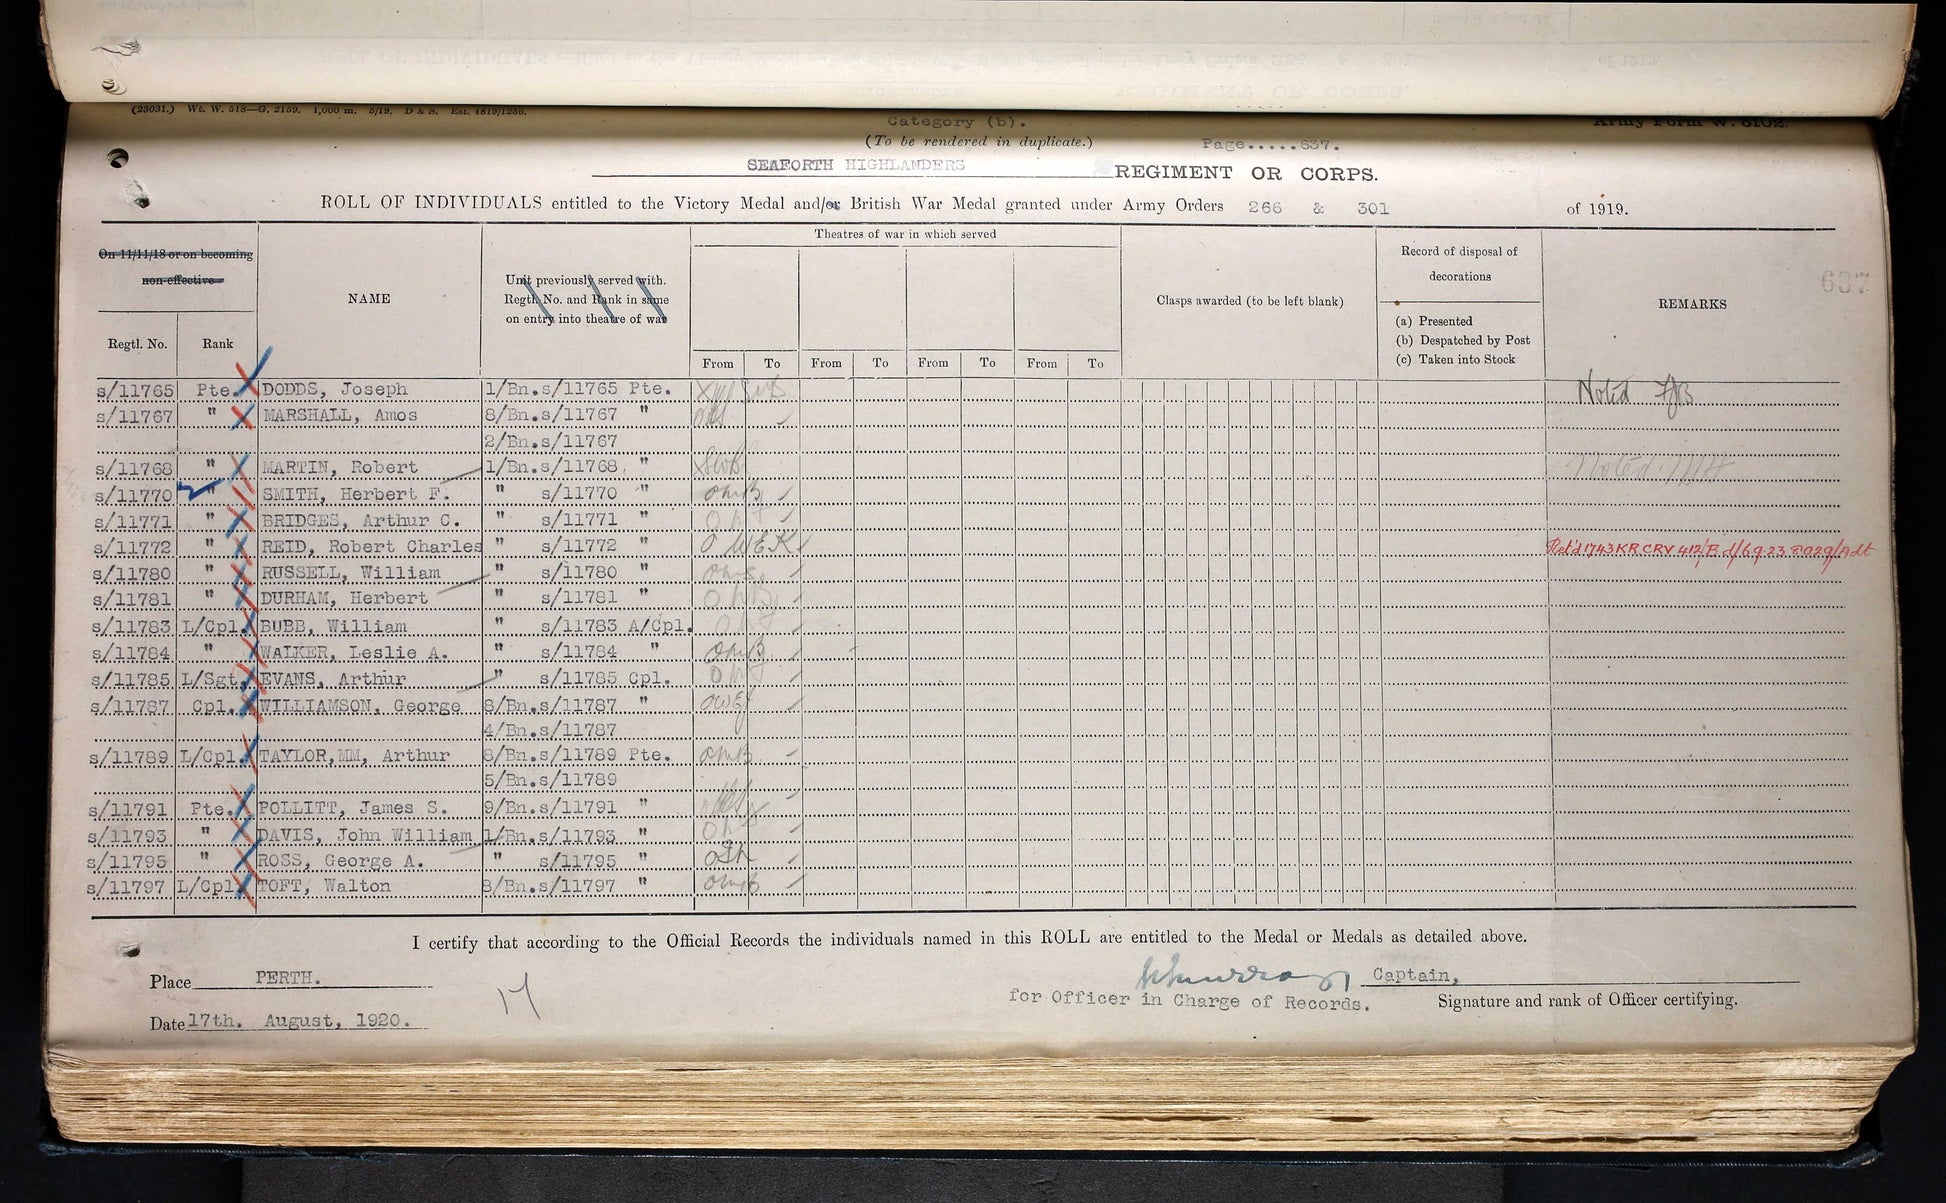 (23031.) Wt. W. 518—G. 2159. 1,000 m. 5/19. D & S. Est. 4819/1256.
Category (b).
Army Form W. 5102.
(To be rendered in duplicate.)
Page.....637.
SEAFORTH HIGHLANDERS REGIMENT OR CORPS.
ROLL OF INDIVIDUALS entitled to the Victory Medal and/or British War Medal granted under Army Orders 266 & 301 of 1919.
On 11/11/18 or on becoming
non-effective
Regtl. No.
Rank
NAME
Unit previously served with.
Regtl. No. and Rank in same
on entry into theatre of war
Theatres of war in which served
From To From To From To From To
Clasps awarded (to be left blank)
Record of disposal of
decorations
(a) Presented
(b) Despatched by Post
(c) Taken into Stock
REMARKS
637
s/11765 Pte. DODDS, Joseph 1/Bn.s/11765 Pte. Noted
s/11767 " MARSHALL, Amos 8/Bn.s/11767 "
2/Bn.s/11767
s/11768 " MARTIN, Robert 1/Bn.s/11768 " Noted
s/11770 " SMITH, Herbert F. " s/11770 "
s/11771 " BRIDGES, Arthur C. " s/11771 "
s/11772 " REID, Robert Charles " s/11772 " Ret'd 1743 KR CRV 412/B d/6.9.23 8029/Adt
s/11780 " RUSSELL, William " s/11780 "
s/11781 " DURHAM, Herbert " s/11781 "
s/11783 L/Cpl. BUBB, William " s/11783 A/Cpl.
s/11784 " WALKER, Leslie A. " s/11784 "
s/11785 L/Sgt. EVANS, Arthur " s/11785 Cpl.
s/11787 Cpl. WILLIAMSON, George 8/Bn.s/11787 "
4/Bn.s/11787
s/11789 L/Cpl. TAYLOR,MM, Arthur 8/Bn.s/11789 Pte.
5/Bn.s/11789
s/11791 Pte. POLLITT, James S. 9/Bn.s/11791 "
s/11793 " DAVIS, John William 1/Bn.s/11793 "
s/11795 " ROSS, George A. " s/11795 "
s/11797 L/Cpl. TOFT, Walton 8/Bn.s/11797 "
I certify that according to the Official Records the individuals named in this ROLL are entitled to the Medal or Medals as detailed above.
Place PERTH.
Captain,
for Officer in Charge of Records.
Signature and rank of Officer certifying.
Date 17th. August, 1920.